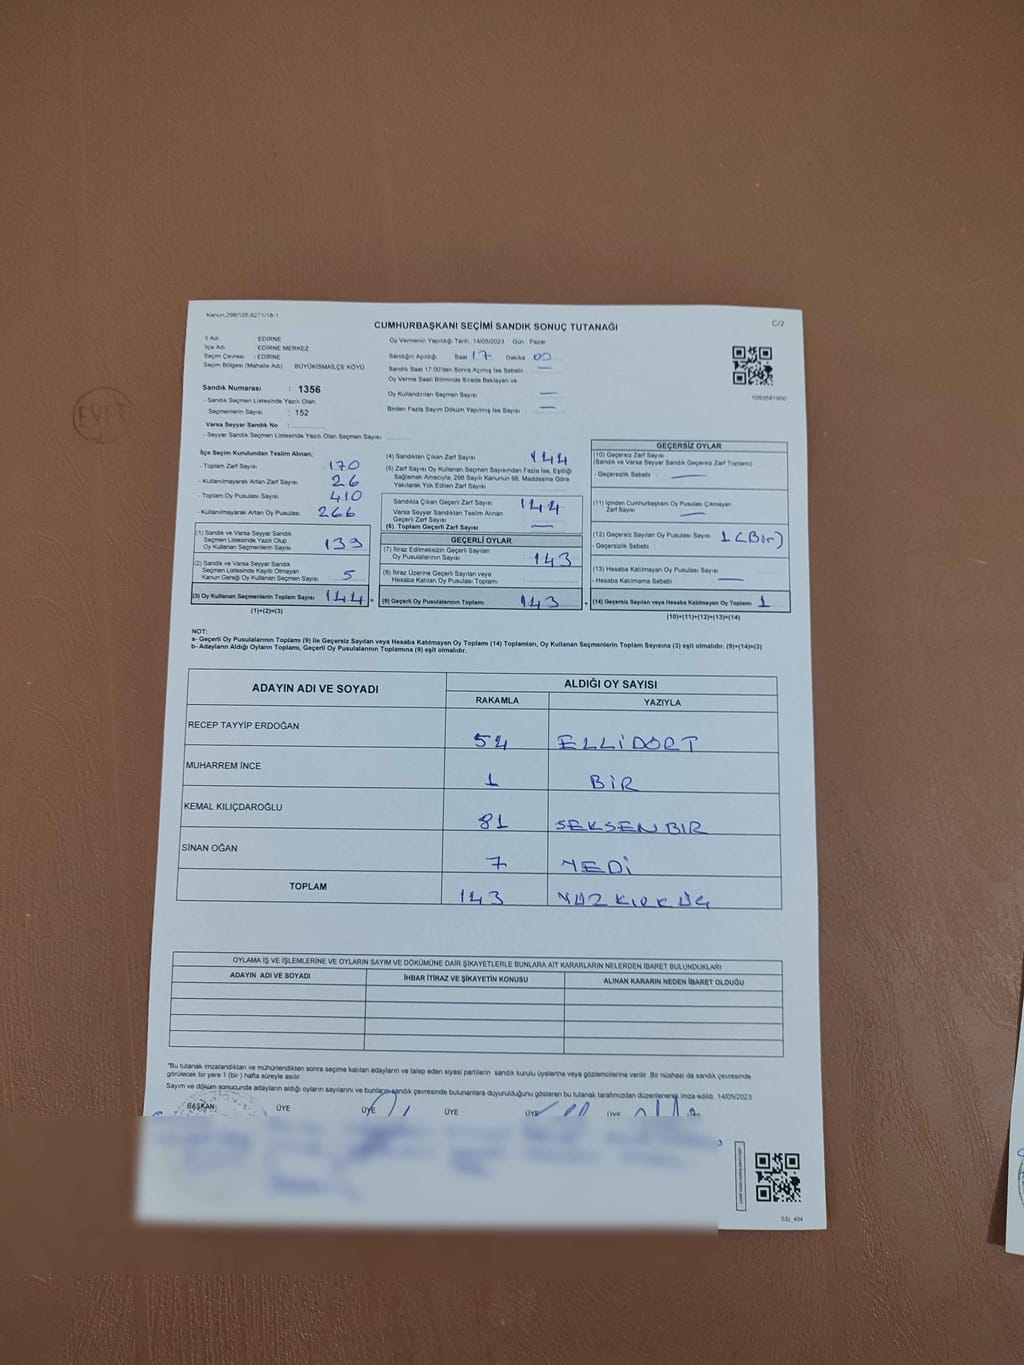 Kanun 298/105,6271/18-1
C/2
CUMHURBAŞKANI SEÇİMİ SANDIK SONUÇ TUTANAĞI
İl Adı : EDİRNE
İlçe Adı : EDİRNE MERKEZ
Seçim Çevresi : EDİRNE
Seçim Bölgesi (Mahalle Adı) : BÜYÜKİSMAİLÇE KÖYÜ
Sandık Numarası : 1356
- Sandık Seçmen Listesinde Yazılı Olan
Seçmenlerin Sayısı : 152
Varsa Seyyar Sandık No :
- Seyyar Sandık Seçmen Listesinde Yazılı Olan Seçmen Sayısı
Oy Vermenin Yapıldığı Tarih : 14/05/2023 Gün : Pazar
Sandığın Açıldığı Saat 17 Dakika 00
Sandık Saat 17:00'den Sonra Açılmış İse Sebebi —
Oy Verme Saati Bitiminde Sırada Bekleyen ve
Oy Kullandırılan Seçmen Sayısı —
Birden Fazla Sayım Döküm Yapılmış İse Sayısı —
1093581950
İlçe Seçim Kurulundan Teslim Alınan;
- Toplam Zarf Sayısı 170
- Kullanılmayarak Artan Zarf Sayısı 26
- Toplam Oy Pusulası Sayısı 410
- Kullanılmayarak Artan Oy Pusulası 266
(1) Sandık ve Varsa Seyyar Sandık
Seçmen Listesinde Yazılı Olup
Oy Kullanan Seçmenlerin Sayısı 139
(2) Sandık ve Varsa Seyyar Sandık
Seçmen Listesinde Kayıtlı Olmayan
Kanun Gereği Oy Kullanan Seçmen Sayısı 5
(3) Oy Kullanan Seçmenlerin Toplam Sayısı 144 =
(1)+(2)=(3)
(4) Sandıktan Çıkan Zarf Sayısı 144
(5) Zarf Sayısı Oy Kullanan Seçmen Sayısından Fazla İse, Eşitliği
Sağlamak Amacıyla, 298 Sayılı Kanunun 98. Maddesine Göre
Yakılarak Yok Edilen Zarf Sayısı
Sandıkta Çıkan Geçerli Zarf Sayısı 144
Varsa Seyyar Sandıktan Teslim Alınan
Geçerli Zarf Sayısı
(6) Toplam Geçerli Zarf Sayısı —
GEÇERLİ OYLAR
(7) İtiraz Edilmeksizin Geçerli Sayılan
Oy Pusulalarının Sayısı 143
(8) İtiraz Üzerine Geçerli Sayılan veya
Hesaba Katılan Oy Pusulası Toplamı
(9) Geçerli Oy Pusulalarının Toplamı 143 +
GEÇERSİZ OYLAR
(10) Geçersiz Zarf Sayısı
(Sandık ve Varsa Seyyar Sandık Geçersiz Zarf Toplamı)
- Geçersizlik Sebebi —
(11) İçinden Cumhurbaşkanı Oy Pusulası Çıkmayan
Zarf Sayısı —
(12) Geçersiz Sayılan Oy Pusulası Sayısı 1 (Bir)
- Geçersizlik Sebebi
(13) Hesaba Katılmayan Oy Pusulası Sayısı
- Hesaba Katılmama Sebebi —
(14) Geçersiz Sayılan veya Hesaba Katılmayan Oy Toplamı 1
(10)+(11)+(12)+(13)=(14)
NOT:
a- Geçerli Oy Pusulalarının Toplamı (9) ile Geçersiz Sayılan veya Hesaba Katılmayan Oy Toplamı (14) Toplamları, Oy Kullanan Seçmenlerin Toplam Sayısına (3) eşit olmalıdır. (9)+(14)=(3)
b- Adayların Aldığı Oyların Toplamı, Geçerli Oy Pusulalarının Toplamına (9) eşit olmalıdır.
ADAYIN ADI VE SOYADI ALDIĞI OY SAYISI
RAKAMLA YAZIYLA
RECEP TAYYİP ERDOĞAN 54 ELLİDÖRT
MUHARREM İNCE 1 BİR
KEMAL KILIÇDAROĞLU 81 SEKSENBİR
SİNAN OĞAN 7 YEDİ
TOPLAM 143 YÜZ KIRK ÜÇ
OYLAMA İŞ VE İŞLEMLERİNE VE OYLARIN SAYIM VE DÖKÜMÜNE DAİR ŞİKAYETLERLE BUNLARA AİT KARARLARIN NELERDEN İBARET BULUNDUKLARI
ADAYIN ADI VE SOYADI İHBAR İTİRAZ VE ŞİKAYETİN KONUSU ALINAN KARARIN NEDEN İBARET OLDUĞU
*Bu tutanak imzalandıktan ve mühürlendikten sonra seçime katılan adayların ve talep eden siyasi partilerin sandık kurulu üyelerine veya gözlemcilerine verilir. Bir nüshası da sandık çevresinde
görülecek bir yere 1 (bir) hafta süreyle asılır.
Sayım ve döküm sonucunda adayların aldığı oyların sayılarını ve bunların sandık çevresinde bulunanlara duyurulduğunu gösteren bu tutanak tarafımızdan düzenlenerek imza edildi. 14/05/2023
BAŞKAN ÜYE ÜYE ÜYE ÜYE ÜYE
SSI_404
EVET